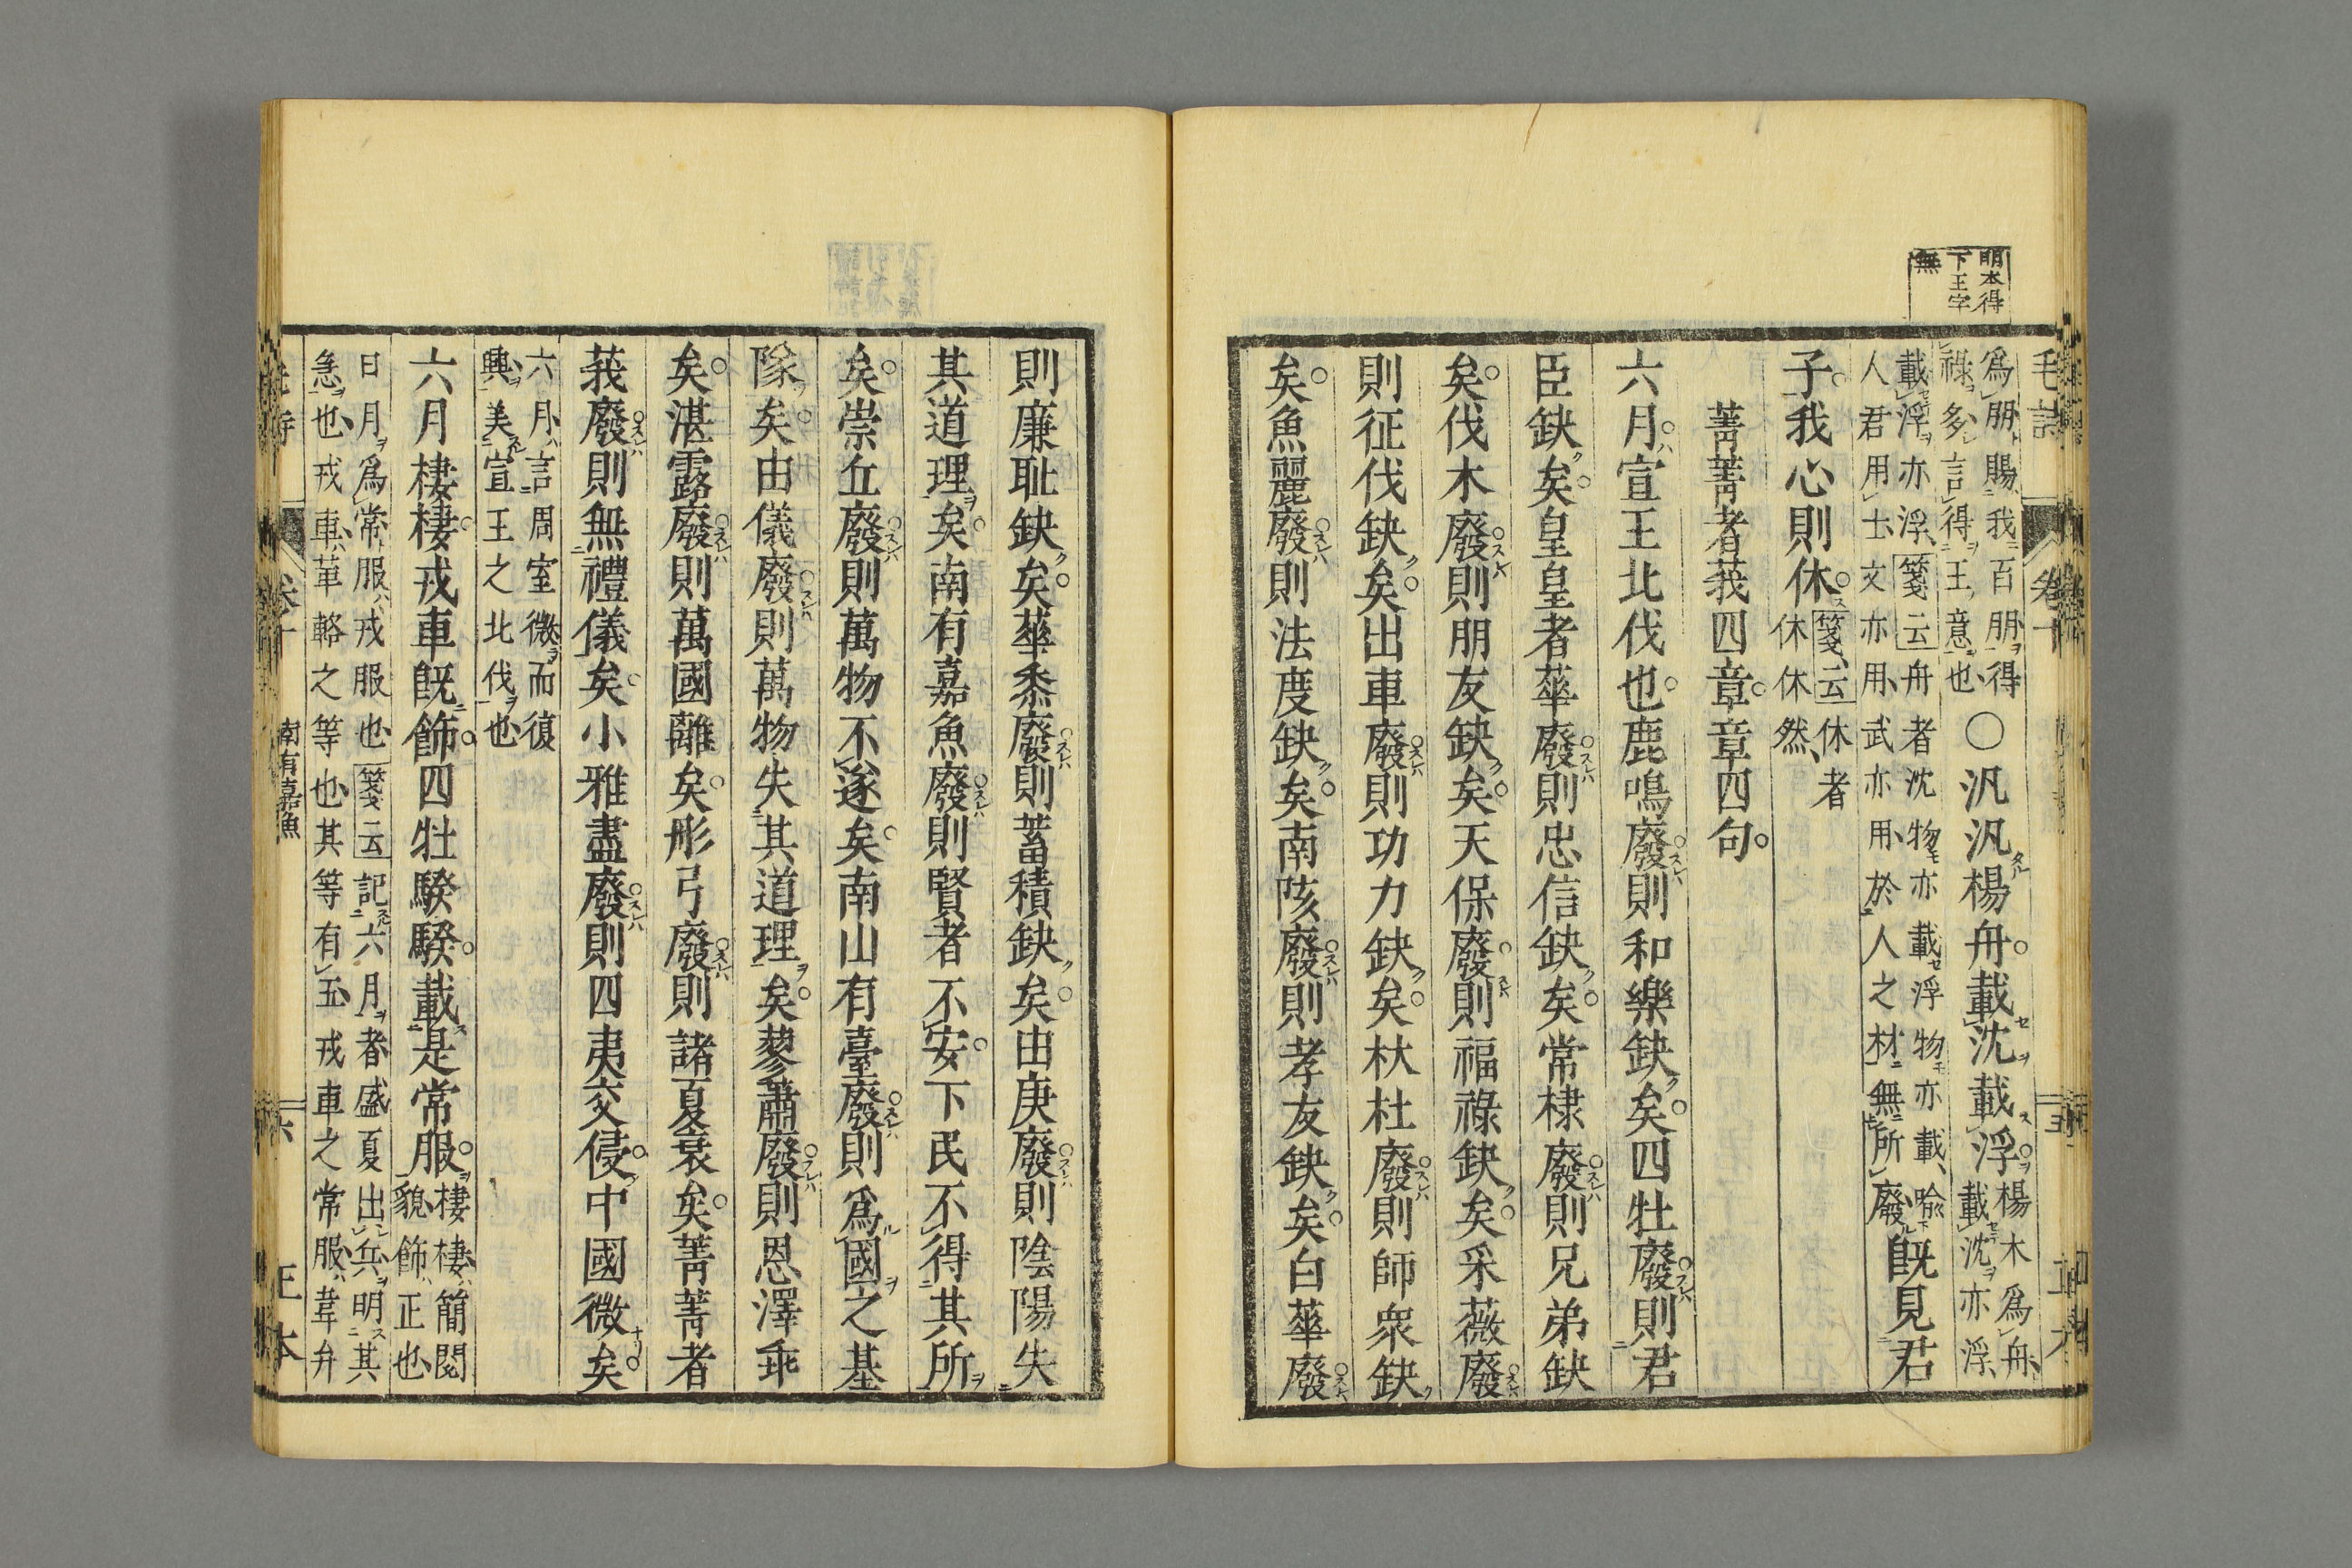 明本得
下王字
無
毛詩 卷十
爲朋賜我百朋得
祿多言得王意也
〇汎汎楊舟載沈載浮
楊木爲舟
載沈亦浮
載浮亦浮箋云舟者沈物亦載浮物亦載喻
人君用士文亦用武亦用於人之材無所廢
既見君
子我心則休
箋云休者
休休然
菁菁者莪四章章四句
六月宣王北伐也鹿鳴廢則和樂缺矣四牡廢則君
臣缺矣皇皇者華廢則忠信缺矣常棣廢則兄弟缺
矣伐木廢則朋友缺矣天保廢則福祿缺矣采薇廢
則征伐缺矣出車廢則功力缺矣杕杜廢則師衆缺
矣魚麗廢則法度缺矣南陔廢則孝友缺矣白華廢
則廉耻缺矣華黍廢則蓄積缺矣由庚廢則陰陽失
其道理矣南有嘉魚廢則賢者不安下民不得其所
矣崇丘廢則萬物不遂矣南山有臺廢則爲國之基
隊矣由儀廢則萬物失其道理矣蓼蕭廢則恩澤乖
矣湛露廢則萬國離矣彤弓廢則諸夏衰矣菁菁者
莪廢則無禮儀矣小雅盡廢則四夷交侵中國微矣
六月言周室微而復
興美宣王之北伐也
六月棲棲戎車既飾四牡騤騤載是常服
棲棲簡閱
貌飾正也
日月爲常服戎服也箋云記六月者盛夏出兵明其
急也戎車革輅之等也其等有五戎車之常服韋弁
南有嘉魚
六
正本